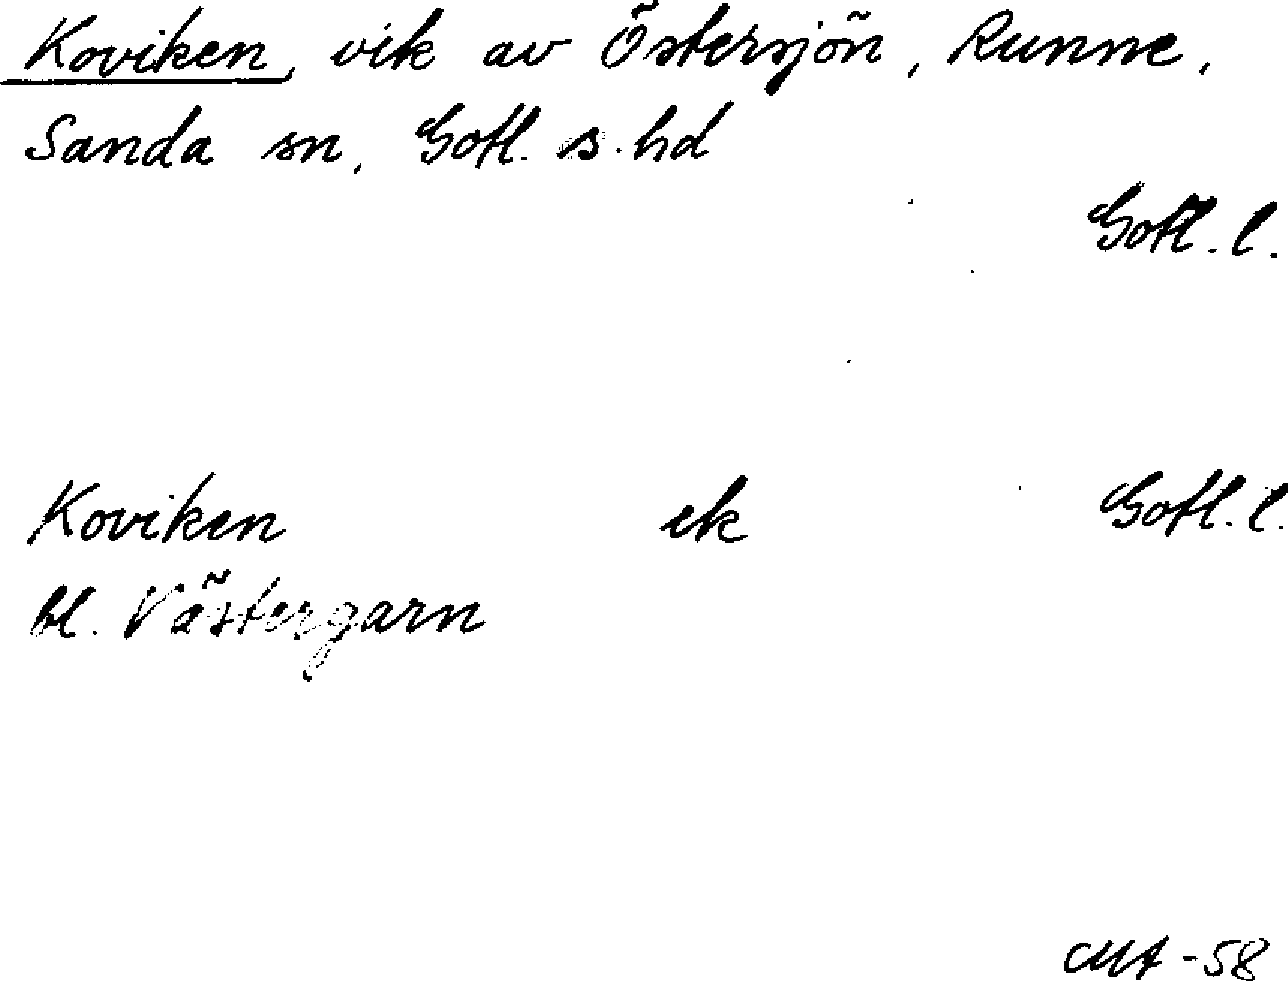 Koviken, vik av Östersjön, Runne,
Sanda sn, Gotl. s. hd
Gotl. l.
Koviken ek Gotl. l.
bl. Västergarn
MA -58